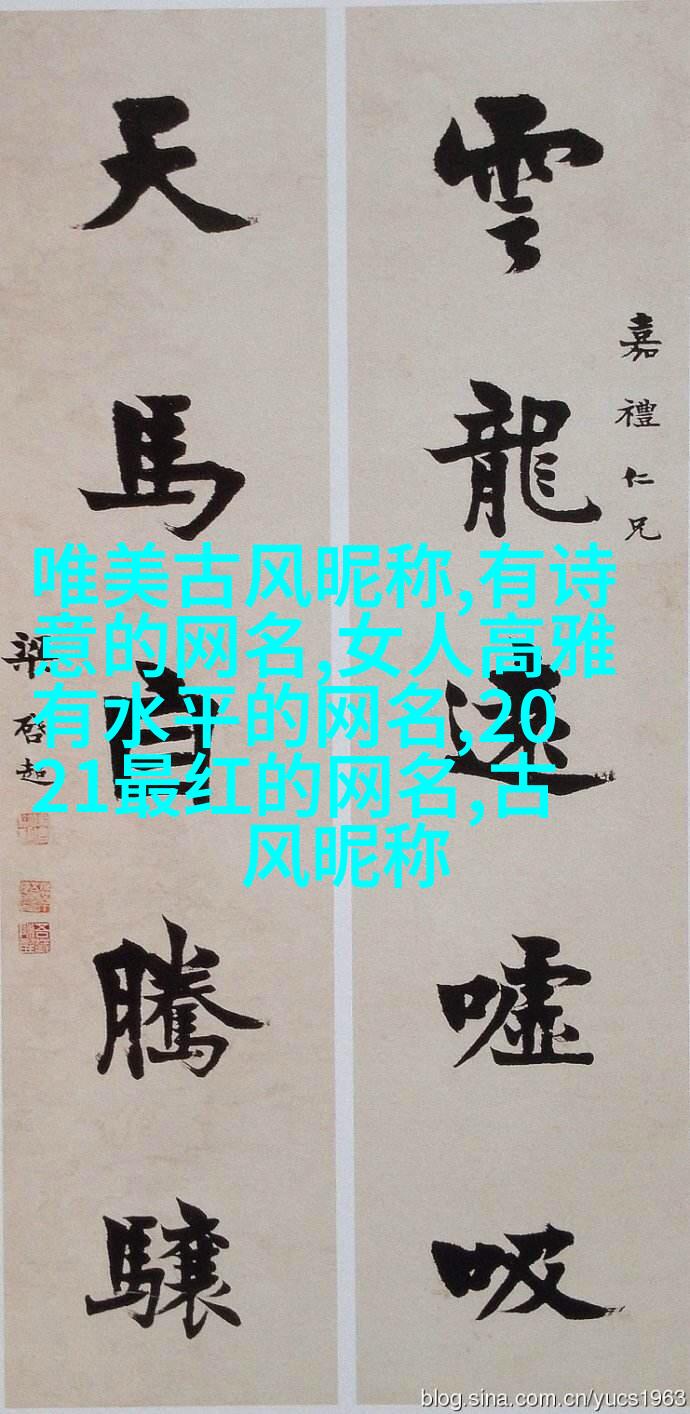 雲龍噓吸
嘉禮仁兄
天馬自騰驤
梁啓超
唯美古风昵称,有诗
意的网名,女人高雅
有水平的网名,20
21最红的网名,古
风昵称
blog.sina.com.cn/yucs1963